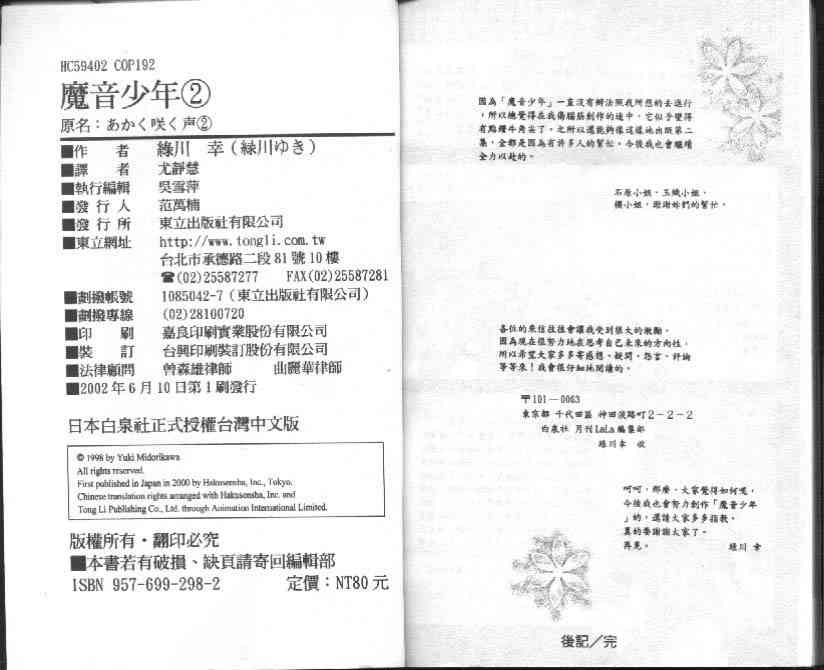 HC59402 COP192
魔音少年②
原名：あかく咲く声②
■作　　者　綠川　幸（緑川ゆき）
■譯　　者　尤靜慧
■執行編輯　吳雪萍
■發 行 人　范萬楠
■發 行 所　東立出版社有限公司
■東立網址　http://www.tongli.com.tw
台北市承德路二段81號10樓
☎(02)25587277　FAX(02)25587281
■劃撥帳號　1085042-7（東立出版社有限公司）
■劃撥專線　(02)28100720
■印　　刷　嘉良印刷實業股份有限公司
■裝　　訂　台興印刷裝訂股份有限公司
■法律顧問　曾森雄律師　曲麗華律師
■2002年6月10日第1刷發行
日本白泉社正式授權台灣中文版
© 1998 by Yuki Midorikawa
All rights reserved.
First published in Japan in 2000 by Hakusensha, Inc., Tokyo.
Chinese translation rights arranged with Hakusensha, Inc. and
Tong Li Publishing Co., Ltd. through Animation International Limited.
版權所有・翻印必究
■本書若有破損、缺頁請寄回編輯部
ISBN 957-699-298-2　定價：NT80元
因為「魔音少年」一直沒有辦法照我所想的去進行
，所以總覺得在我傷腦筋創作的途中，它似乎變得
有點鑽牛角尖了。之所以還能夠像這樣地出版第二
集，全都是因為有許多人的幫忙。今後我也會繼續
全力以赴的。
石原小姐、玉織小姐、
櫻小姐，謝謝妳們的幫忙。
各位的來信往往會讓我受到很大的激勵。
因為現在很努力地在思考自己未來的方向性，
所以希望大家多多寄感想、疑問、怨言、評論
等等來！我會很仔細地閱讀的。
〒101－0063
東京都 千代田區 神田淡路町２－２－２
白泉社 月刊LaLa編集部
綠川幸 收
呵呵，那麼，大家覺得如何呢，
今後我也會努力創作「魔音少年
」的，還請大家多多指教。
真的要謝謝大家了。
再見。　綠川 幸
後記／完